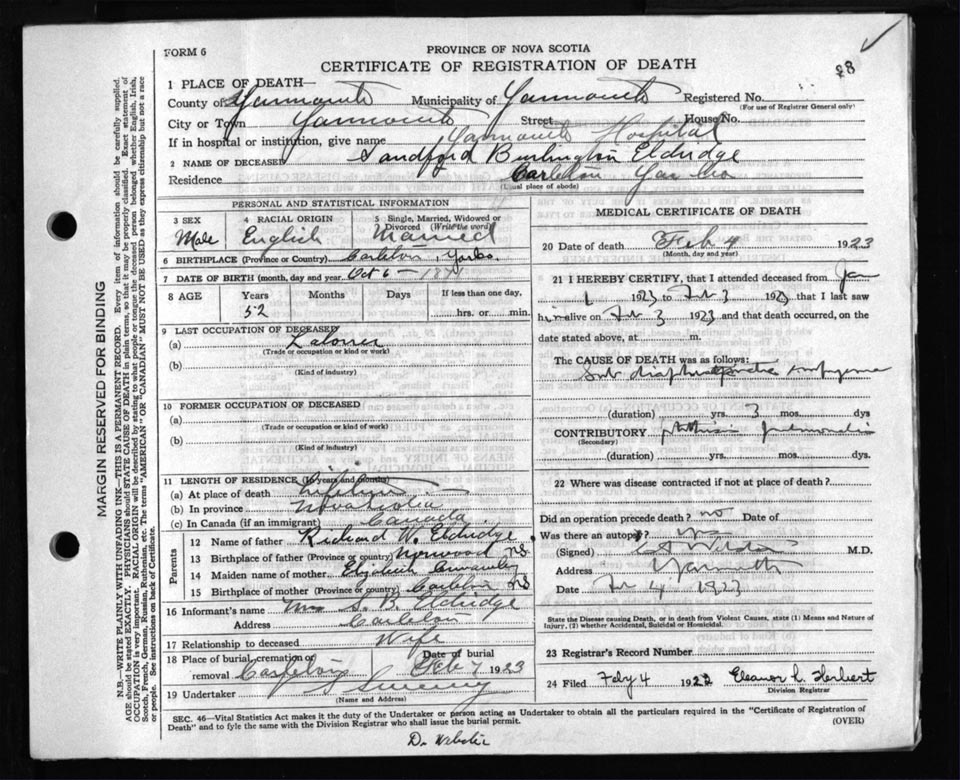 FORM 6
PROVINCE OF NOVA SCOTIA
88
CERTIFICATE OF REGISTRATION OF DEATH
1 PLACE OF DEATH—
County of Yarmouth Municipality of Yarmouth Registered No.
(For use of Registrar General only)
City or Town Yarmouth Street House No.
If in hospital or institution, give name Yarmouth Hospital
2 NAME OF DECEASED Sandford Burlington Eldridge
Residence Carleton Yar Mo
(Usual place of abode)
PERSONAL AND STATISTICAL INFORMATION
3 SEX 4 RACIAL ORIGIN 5 Single, Married, Widowed or Divorced (Write the word)
Male English Married
6 BIRTHPLACE (Province or Country) Carleton
7 DATE OF BIRTH (month, day and year Oct 6 — 18
8 AGE Years Months Days If less than one day,
52 hrs. or min.
9 LAST OCCUPATION OF DECEASED
(a) Laborer
(Trade or occupation or kind or work)
(b)
(Kind of industry)
10 FORMER OCCUPATION OF DECEASED
(a)
(Trade or occupation or kind of work)
(b)
(Kind of industry)
11 LENGTH OF RESIDENCE (in years and months)
(a) At place of death Lifetime
(b) In province Nova Scotia
(c) In Canada (if an immigrant) Canada
Parents
12 Name of father Richard W. Eldridge
13 Birthplace of father (Province or country) Norwood NS
14 Maiden name of mother Elizabeth
15 Birthplace of mother (Province or country) Carleton NS
16 Informant's name Mrs S. B. Eldridge
Address Carleton
17 Relationship to deceased Wife
18 Place of burial, cremation or removal Carleton Date of burial Feb 7 1923
19 Undertaker Sweeny
(Name and Address)
MEDICAL CERTIFICATE OF DEATH
20 Date of death Feb 4 1923
(Month, day and year)
21 I HEREBY CERTIFY, that I attended deceased from Jan
1 1923 to Feb 3 1923 that I last saw
him alive on Feb 3 1923 and that death occurred, on
date stated above, at m.
The CAUSE OF DEATH was as follows:
Sub diaphragmatic Empyema
(duration) yrs. 3 mos. dys
CONTRIBUTORY Phthisis pulmonalis
(Secondary)
(duration) yrs. mos. dys.
22 Where was disease contracted if not at place of death?
Did an operation precede death? no Date of
Was there an autopsy?
(Signed) M.D.
Address Yarmouth
Date Feb 4 1923
State the Disease causing Death, or in death from Violent Causes, state (1) Means and Nature of
Injury, (2) whether Accidental, Suicidal or Homicidal.
23 Registrar's Record Number
24 Filed Feby 4 1922 Eleanor L. Herbert
Division Registrar
SEC. 46—Vital Statistics Act makes it the duty of the Undertaker or person acting as Undertaker to obtain all the particulars required in the "Certificate of Registration of
Death" and to fyle the same with the Division Registrar who shall issue the burial permit.
(OVER)
D. Webster
MARGIN RESERVED FOR BINDING
N.B.—WRITE PLAINLY WITH UNFADING INK—THIS IS A PERMANENT RECORD. Every item of information should be carefully supplied.
AGE should be stated EXACTLY. PHYSICIANS should STATE CAUSE OF DEATH in plain terms, so that it may be properly classified. Exact statement of
OCCUPATION is very important. RACIAL ORIGIN will be described by stating to what people or tongue the deceased person belonged whether English, Irish,
Scotch, French, German, Russian, Ruthenian, etc. The terms "AMERICAN" OR "CANADIAN" MUST NOT BE USED as they express citizenship but not a race
or people. See instructions on back of Certificate.